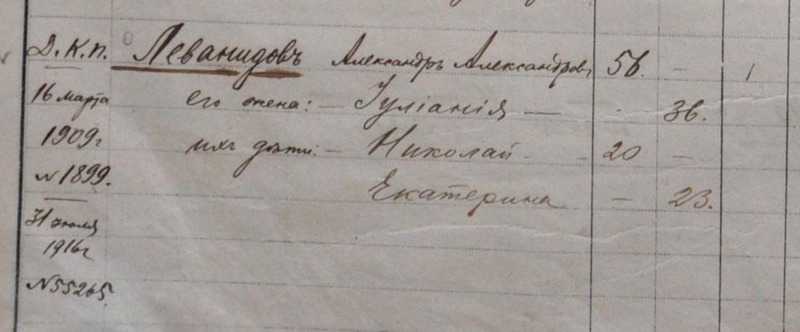 Д.К.п. Леванидовъ Александръ Александров. 56. — 1
16 марта его жена: — Іуліанія — - 36.
1909г ихъ дѣти: — Николай - - 20 —
№1899. Екатерина — 23.
31 июля
1916г
№55265.